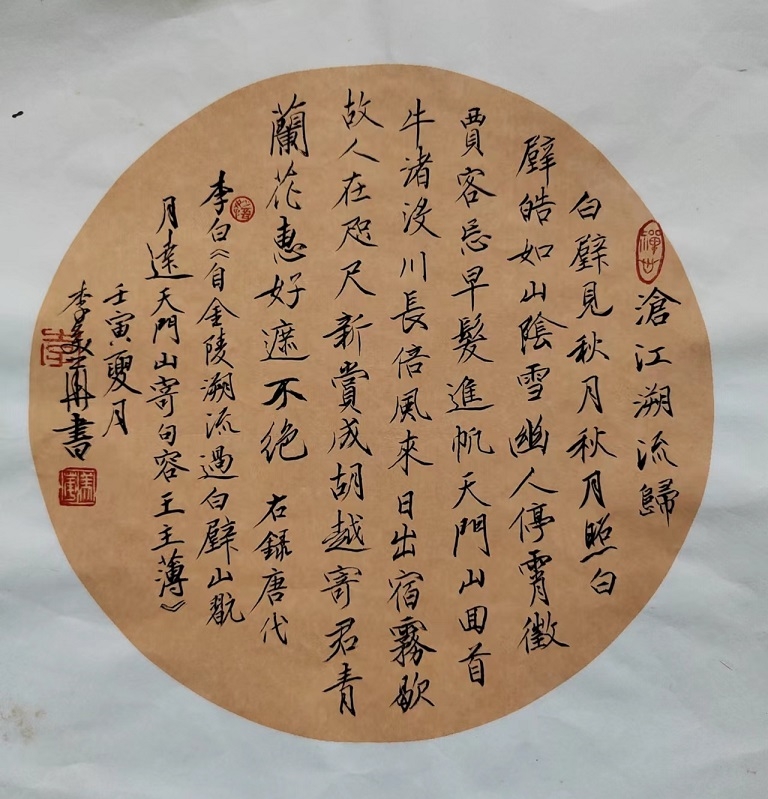 滄江溯流歸
白璧見秋月秋月照白
璧皓如山陰雪幽人停霄徵
賈客忌早髮進帆天門山回首
牛渚沒川長倍風來日出宿霧歇
故人在咫尺新賞成胡越寄君青
蘭花惠好遮不絕 右録唐代
李白《自金陵溯流過白璧山翫
月達天門山寄句容王主薄》
壬寅夏月
李 書